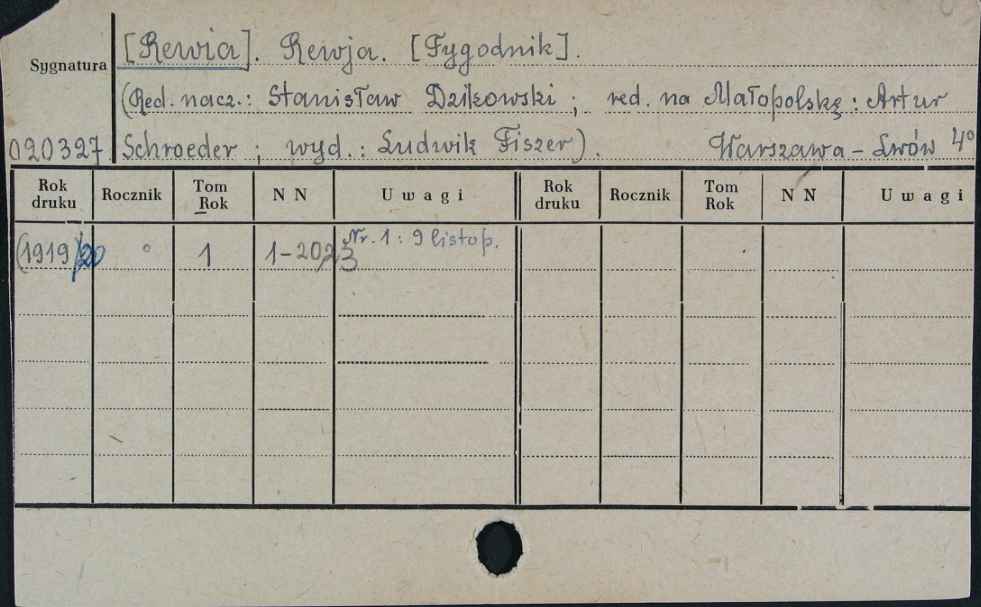 [Rewia]. Rewja. [Tygodnik].
Sygnatura
(Red. nacz.: Stanisław Dzikowski; red. na Małopolskę: Artur
020327 Schroeder; wyd.: Ludwik Fiszer). Warszawa - Lwów 4°
Rok druku Rocznik Tom Rok N N Uwagi Rok druku Rocznik Tom Rok N N Uwagi
(1919)/20 1 1-20, 23 Nr. 1: 9 listop.